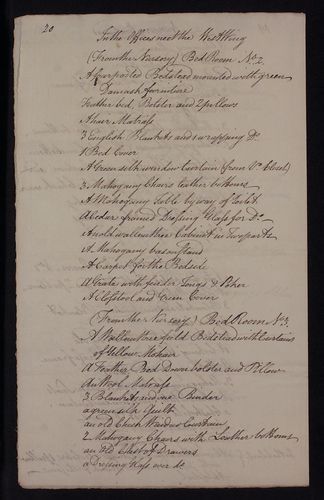 20
In the Offices next the West Wing
(From the Nursery) Bed Room No. 2.
A four posted Bedstead mounted with green
Damask furniture
Feather bed, Bolster and 2 pillows
A hair Matrass
3 English Blankets and 1 wrapping Do.
1 Bed Cover
A Green silk window Curtain (from
3 Mahogany Chairs leather bottoms
A Mahogany table by way of toilet
A Ceder framed Dressing Glass for Do.
An old wallnuttree Cabinet in Two parts
A Mahogany bason stand
A Carpet for the Bedside
A Grate with fender Tongs & Poker
A Closstool and Green Cover
(From the Nursery) Bed Room No. 3.
A Wallnuttree field Bedstead with Curtains
of Yellow Mohair
A Feather Bed Down bolster and Pillow
An Wool Matrass
3 Blankets and one Binder
a green silk Quilt
an old Check Window Curtain
2 Mahogany Chairs with Leather bottoms
an Old Chest of Drawers
a Dressing Glass over do